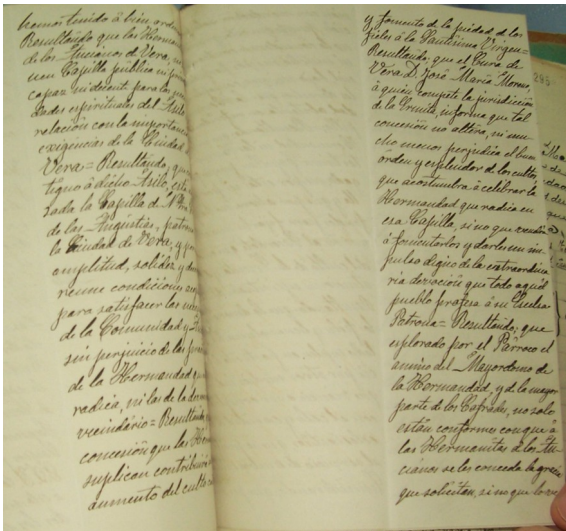 hemos tenido á bien orde
Resultando que las Herma
de los Ancianos de Vera, n
nen Capilla pública ni pri
capaz ni decente para las ne
dades espirituales del Asilo
relacion con la importan
exigencias de la Ciudad
Vera= Resultando, que
tíguo á dicho Asilo, está
sada la Capilla de N.
de las Angustias, patrona
la Ciudad de Vera, y por
amplitud, solidez y de
reune condiciones
para satisfacer las nece
de la Comunidad y
sin perjuicio de las
de la Hermandad que
radica, ni los de la demas
vecindário= Resultando
concesión que las Herm
suplican contribuirá
aumento del culto
y fomento de la piedad de los
fieles á la Santísima Virgen=
Resultando, que el Cura de
Vera D. José María Moreno,
á quien compete la jurisdicción
de la Ermita, informa que tal
concesion no altera, ni mu
cho menos perjudica el buen
órden y esplendor de los cultos
que acostumbra á celebrar la
Hermandad que radica en
esa Capilla, sino que vendría
á fomentarlos y darles un im
pulso digno de la extraordina
ria devoción que todo aquél
pueblo profesa á su Excelsa
Patrona= Resultando, que
esplorado por el Párroco el
animo del Mayordomo de
la Hermandad, y de la mayor
parte de los Cofrades, no solo
están conformes con que á
las Hermanitas de los An
cianos se les conceda la gracia
que solicitan, sino que lo ve
295